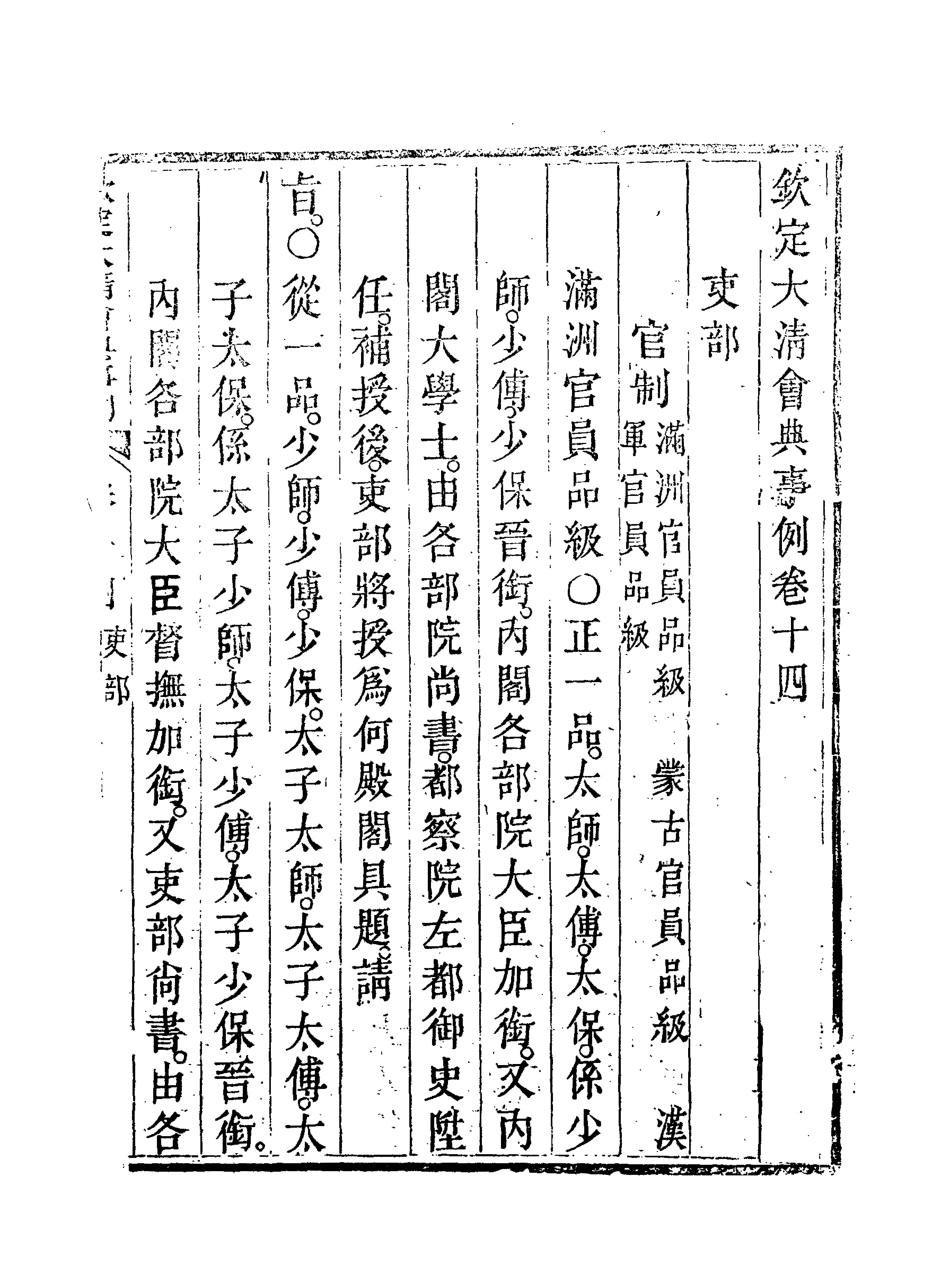 欽定大清會典事例卷十四
吏部
官制 滿洲官員品級 蒙古官員品級 漢
軍官員品級
滿洲官員品級○正一品。太師。太傅。太保。係少
師。少傅。少保晉銜。內閣各部院大臣加銜。又內
閣大學士。由各部院尚書。都察院左都御史陞
任。補授後。吏部將授爲何殿閣具題。請
旨。○從一品。少師。少傅。少保。太子太師。太子太傅。太
子太保。係太子少師。太子少傅。太子少保晉銜。
內閣各部院大臣督撫加銜。又吏部尚書。由各
吏部